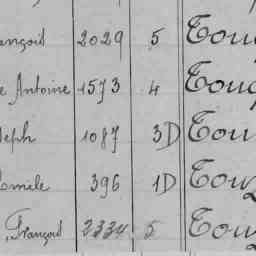 ançois 2029 5 Toug
e Antoine 1573 4 Toug
seph 1087 3D Tou
Emile 396 1D Touz
François 2334 5 Touz